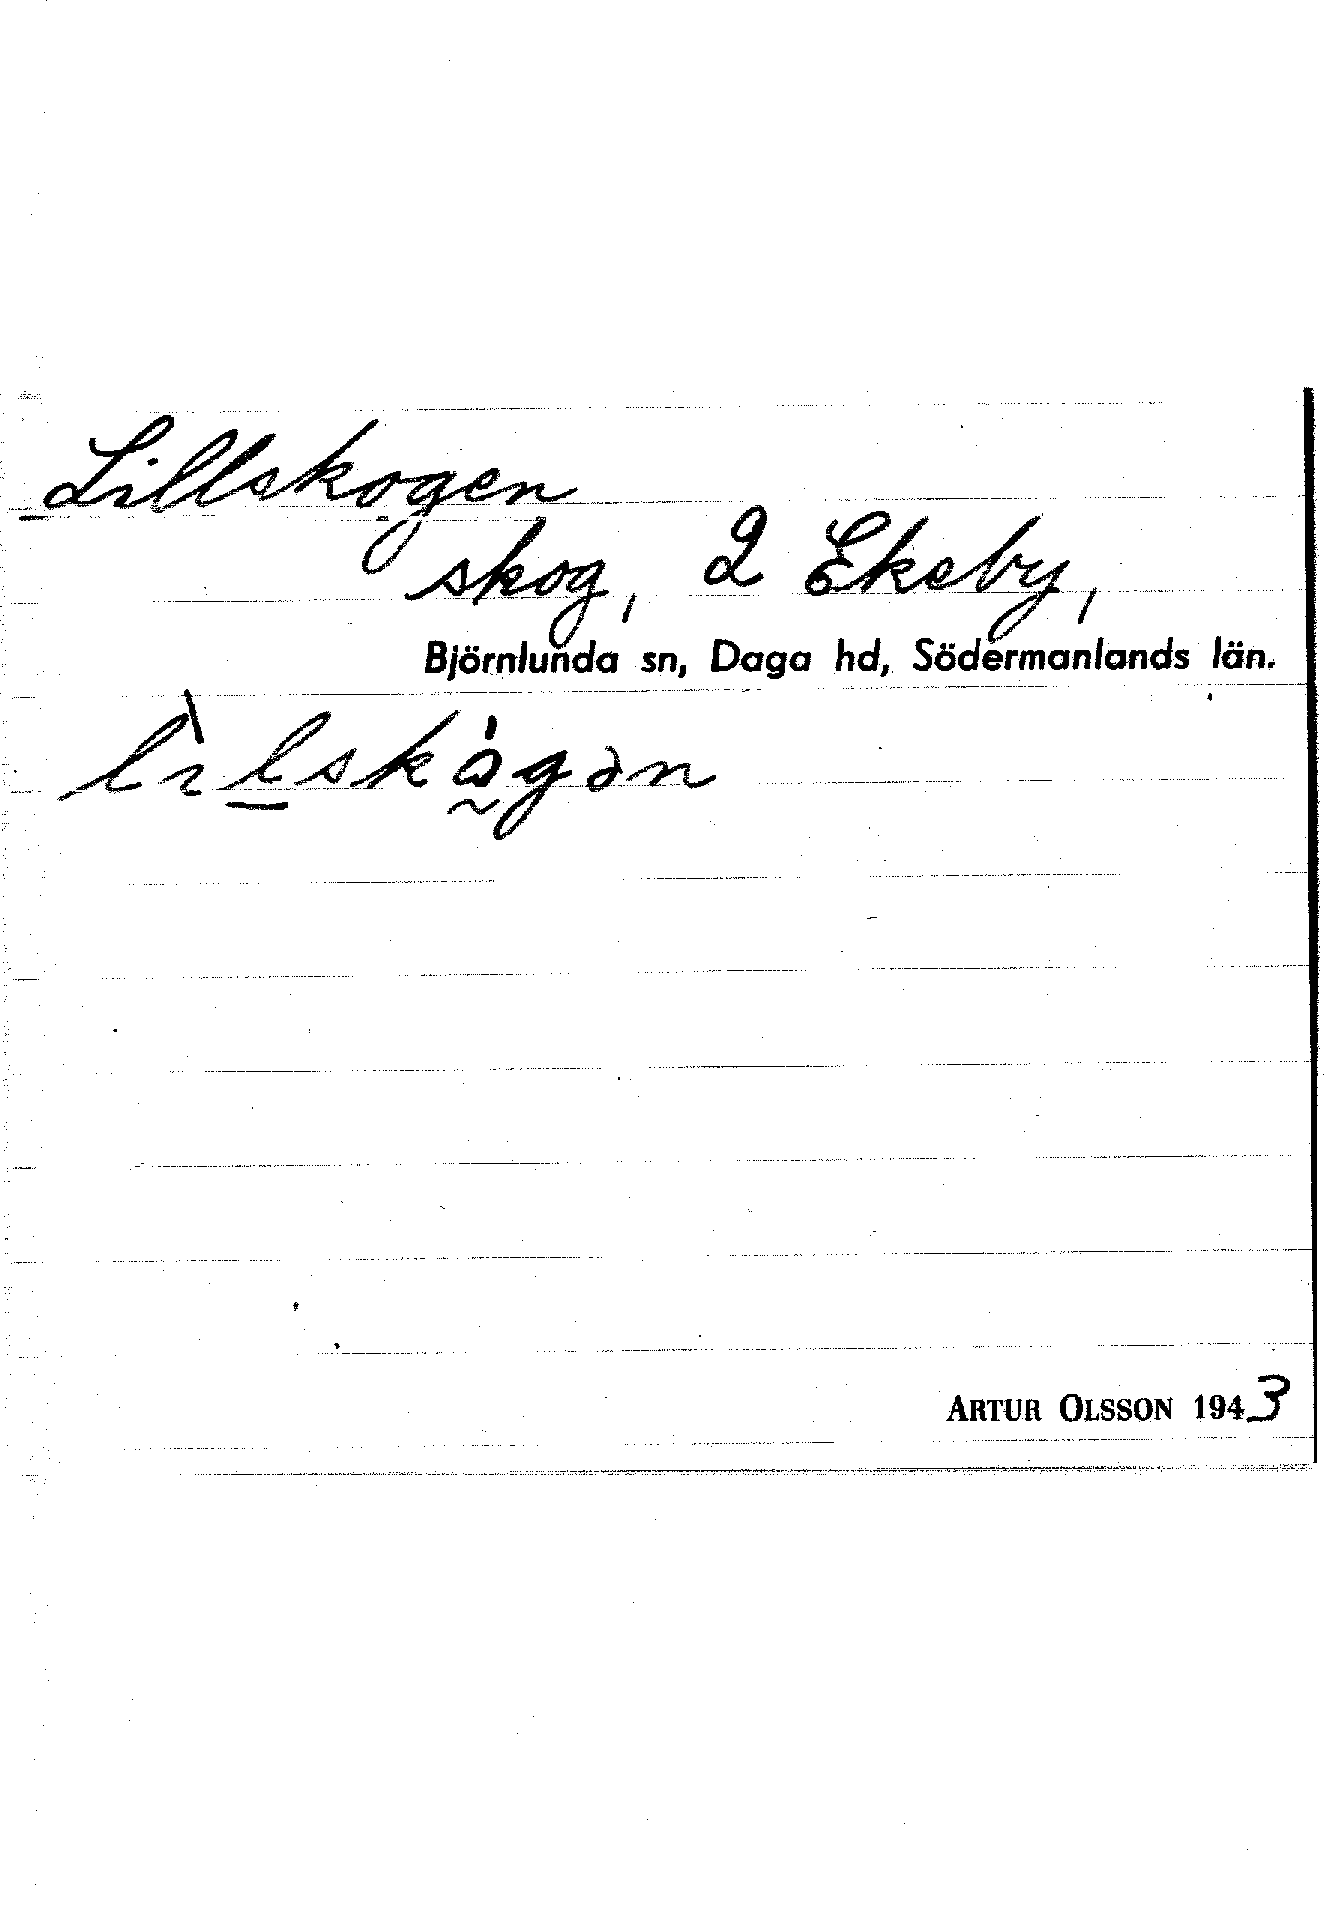 Lillskogen
skog, 2 Ekeby,
Björnlunda sn, Daga hd, Södermanlands län.
lìlskógən
ARTUR OLSSON 1943